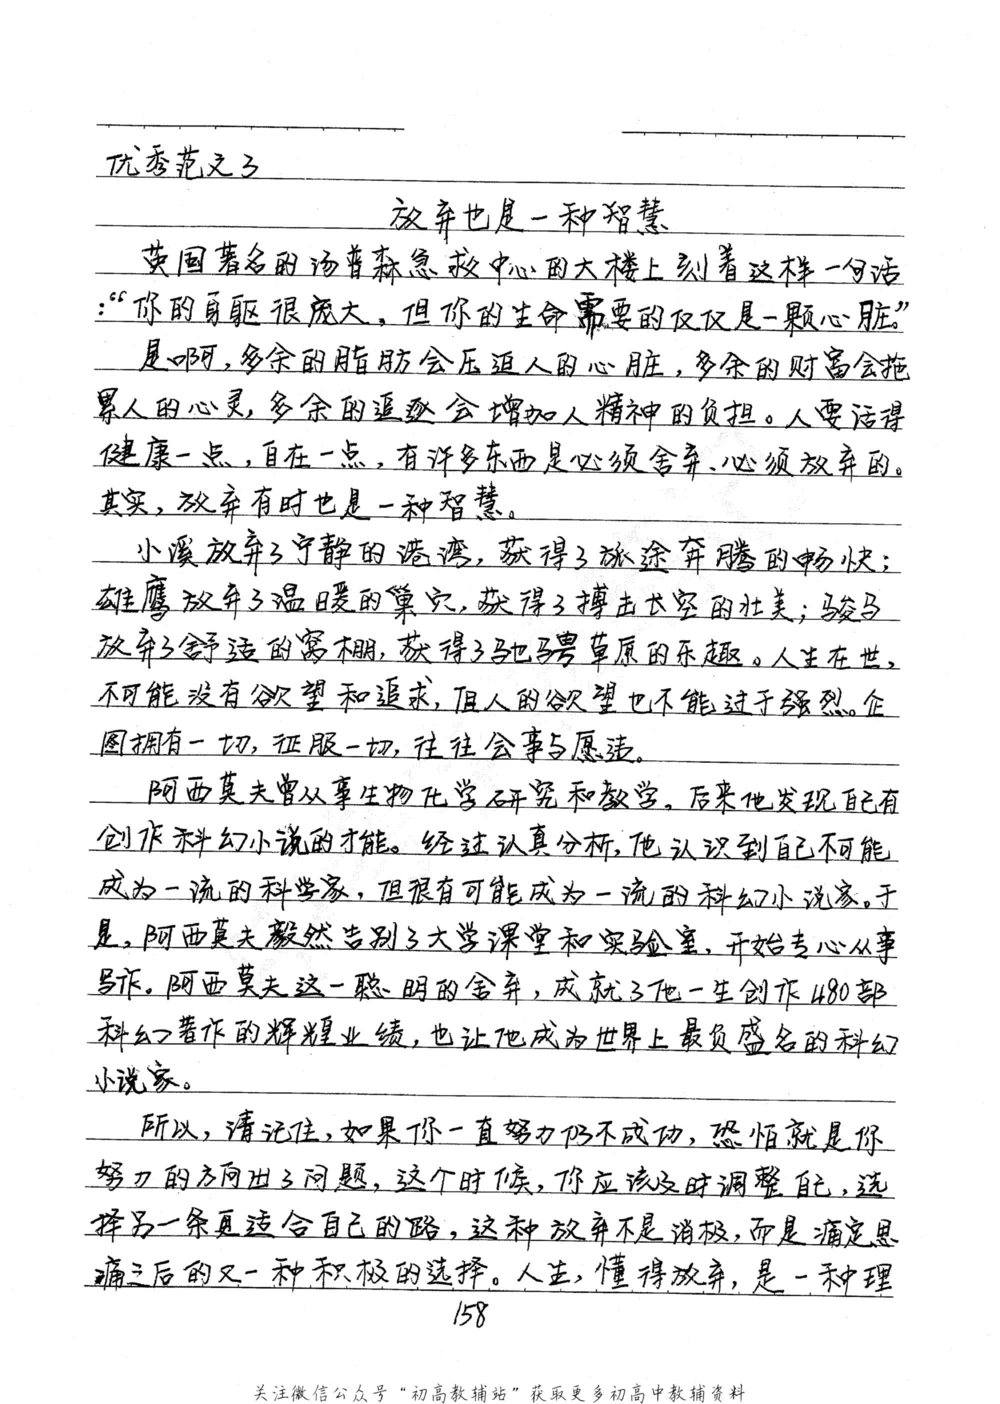 优秀范文3
放弃也是一种智慧
英国著名的汤普森急救中心的大楼上刻着这样一句话
：“你的身躯很庞大，但你的生命需要的仅仅是一颗心脏。”
是啊，多余的脂肪会压迫人的心脏，多余的财富会拖
累人的心灵，多余的追逐会增加人精神的负担。人要活得
健康一点，自在一点，有许多东西是必须舍弃、必须放弃的。
其实，放弃有时也是一种智慧。
小溪放弃了宁静的港湾，获得了旅途奔腾的畅快；
雄鹰放弃了温暖的巢穴，获得了搏击长空的壮美；骏马
放弃了舒适的窝棚，获得了驰骋草原的乐趣。人生在世，
不可能没有欲望和追求，但人的欲望也不能过于强烈。企
图拥有一切，征服一切，往往会事与愿违。
阿西莫夫曾从事生物化学研究和教学，后来他发现自己有
创作科幻小说的才能。经过认真分析，他认识到自己不可能
成为一流的科学家，但很有可能成为一流的科幻小说家。于
是，阿西莫夫毅然告别了大学课堂和实验室，开始专心从事
写作。阿西莫夫这一聪明的舍弃，成就了他一生创作480部
科幻著作的辉煌业绩，也让他成为世界上最负盛名的科幻
小说家。
所以，请记住，如果你一直努力仍不成功，恐怕就是你
努力的方向出了问题，这个时候，你应该及时调整自己，选
择另一条更适合自己的路，这种放弃不是消极，而是痛定思
痛之后的又一种积极的选择。人生，懂得放弃，是一种理
158
关注微信公众号“初高教辅站”获取更多初高中教辅资料